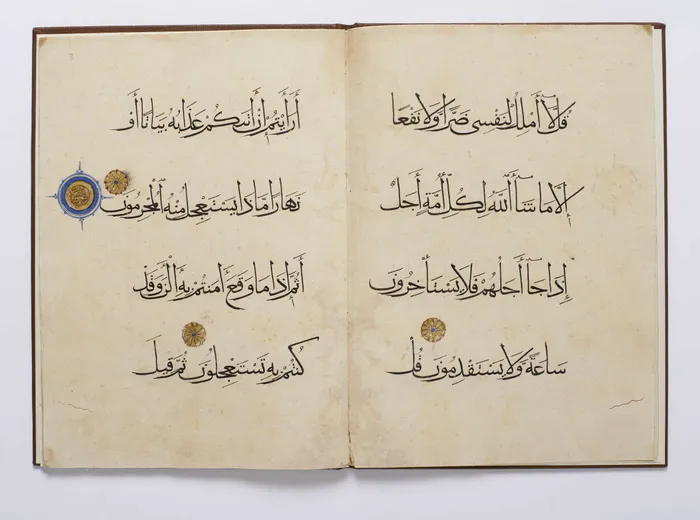 قُل لَّا أَمْلِكُ لِنَفْسِى ضَرًّا وَلَا نَفْعًا
إِلَّا مَا شَآءَ اللَّهُ لِكُلِّ أُمَّةٍ أَجَلٌ
إِذَا جَآءَ أَجَلُهُمْ فَلَا يَسْتَأْخِرُونَ
سَاعَةً وَلَا يَسْتَقْدِمُونَ قُلْ
أَرَأَيْتُمْ إِنْ أَتَىٰكُمْ عَذَابُهُ بَيَاتًا أَوْ
نَهَارًا مَاذَا يَسْتَعْجِلُ مِنْهُ الْمُجْرِمُونَ
أَثُمَّ إِذَا مَا وَقَعَ ءَامَنْتُمْ بِهِ آلْـَٰٔنَ وَقَدْ
كُنْتُمْ بِهِ تَسْتَعْجِلُونَ ثُمَّ قِيلَ